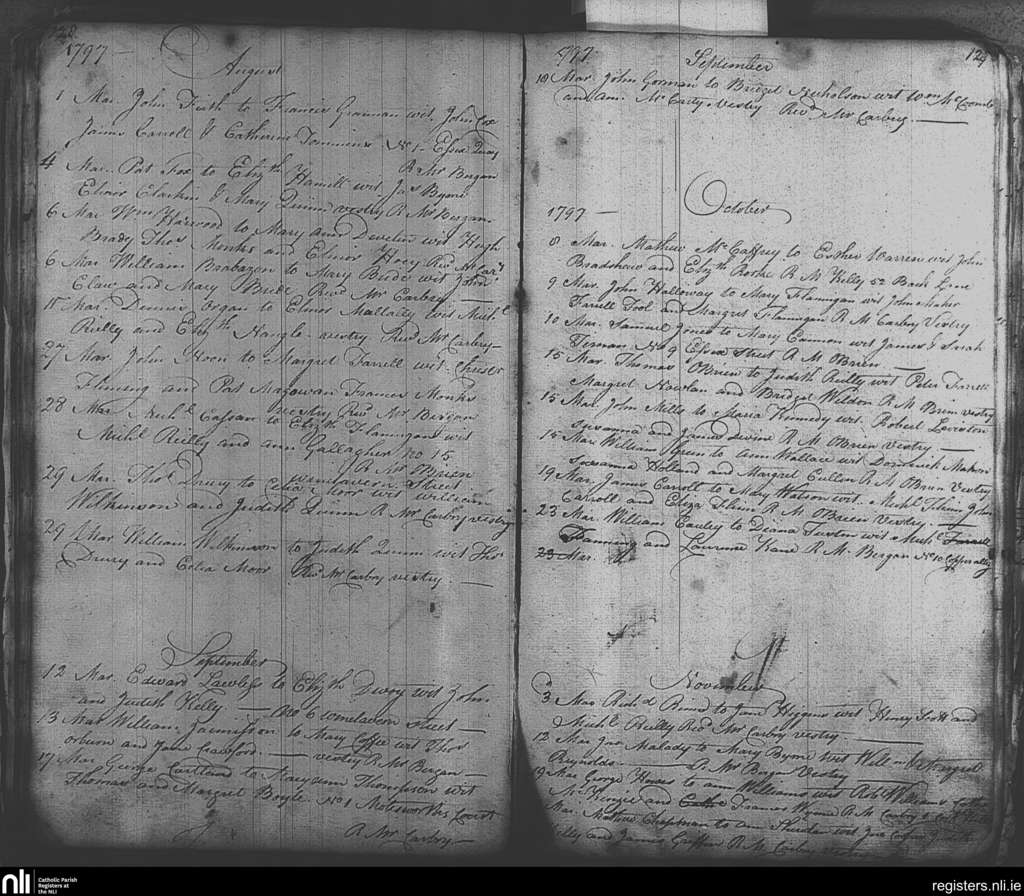 128
1797 —
August
1 Mar. John Tuth to Francis Gorman wit. John Cox
James Carroll & Catherine No 1 - Essex Quay
R Mr Bergan
4 Mar. Pat Fox to Elizth Hamill wit Jas Byrne
Elinor Clarkin & Mary Quinn vestry R Mr Bergan
6 Mar Wm Harwood to Mary ann Develin wit Hugh
Brady Thos Monks and Elinor Hoey Revd Mr Carby
6 Mar William Brabazon to Mary Bride wit John
Claw and Mary Bride Revd Mr Carbry —
15 Mar. Dennis Organ to Elinor Mallally wit Michl
Reilly and Elizth Nangle - vestry Revd Mr Carbry -
27 Mar. John Noon to Margret Farrell wit Chrisr
Fleming and Pat Magowan Frances Monks
vestry Revd Mr Bergan
28 Mar Michl to Elizth Flannigan wit
Michl Reilly and ann Gallagher No 15
R Mr OBrien
winetavern Street
29 Mar. Thos Drury to Celia Moor wit William
Wilkinson and Judith Quinn R Mr Carbry vestry
29 Mar William Wilkinson to Judith Quinn wit Thos
Drury and Celia Moor Revd Mr Carbry vestry. —
September
12 Mar. Edward Lawless to Elizth Dwoy wit John
and Judith Kelly. — No 6 winetavern Street —
13 Mar William Jamisson to Mary Coffee wit Thos
orburn and Jane Crawford. — vestry R Mr Bergan —
17 Mar George Cartland to Maryann Thompson wit
Thomas and Margret Boyle No 1 Molesworths Court
R Mr Carbry —
1797 September 129
18 Mar. John Gorman to Bridget Nicholson wit Wm McComb
and An. McCarty - Vestry Revd Mr Carbry. —
October
1797 —
8 Mar. Mathew McCaffrey to Esther Warren wit John
Bradshaw and Elizth Rorke R M Kelly 52 Back Lane
9 Mar. John Halloway to Mary Flannigan wit John Maher
Farrell Tool and Margret Flannigan R M Carbry Vestry
10 Mar. Samuel Jones to Mary Cannon wit James & Sarah
Ternan No 9 Essex Street R M OBrien —
15 Mar. Thomas OBrien to Judith Reilly wit Peter Farrell
Margret Nowlan and Bridget Weldon R M Brien vestry
15 Mar. John Mills to Maria Kennedy wit. Robert
Susanna and James Devine R M OBrien Vestry —
15 Mar William Green to Ann Wallace wit Dominick
Susanna Holland and Margret Cullen R M OBrien Vestry
19 Mar. James Carroll to Mary Watson wit. Michl John
Carroll and Eliza R M OBrien Vestry. —
23 Mar. William Cauley to Diana Tuxton wit Michl Farrell
Fanning and Laurence Kane R M. Bergan No 10 Copper ally
23 Mar.
November
3 Mar Richd to Jane Higgins wit Henry Scott and
Michl Reilly Revd Mr Carbry vestry. —
12 Mar Jno Malady to Mary Byrne wit Will
Reynolds. — R Mr Bergan Vestry —
19 Mar George Howes to ann Williams wit Robt Williams
McKenzie and Frances Wynne R M Carbry
Mar. Mathew Chapman to ann Sheridan wit Jno
Kelly and James Griffin R M Carbry Vestry
nli
Catholic Parish
Registers at
the NLI
registers.nli.ie